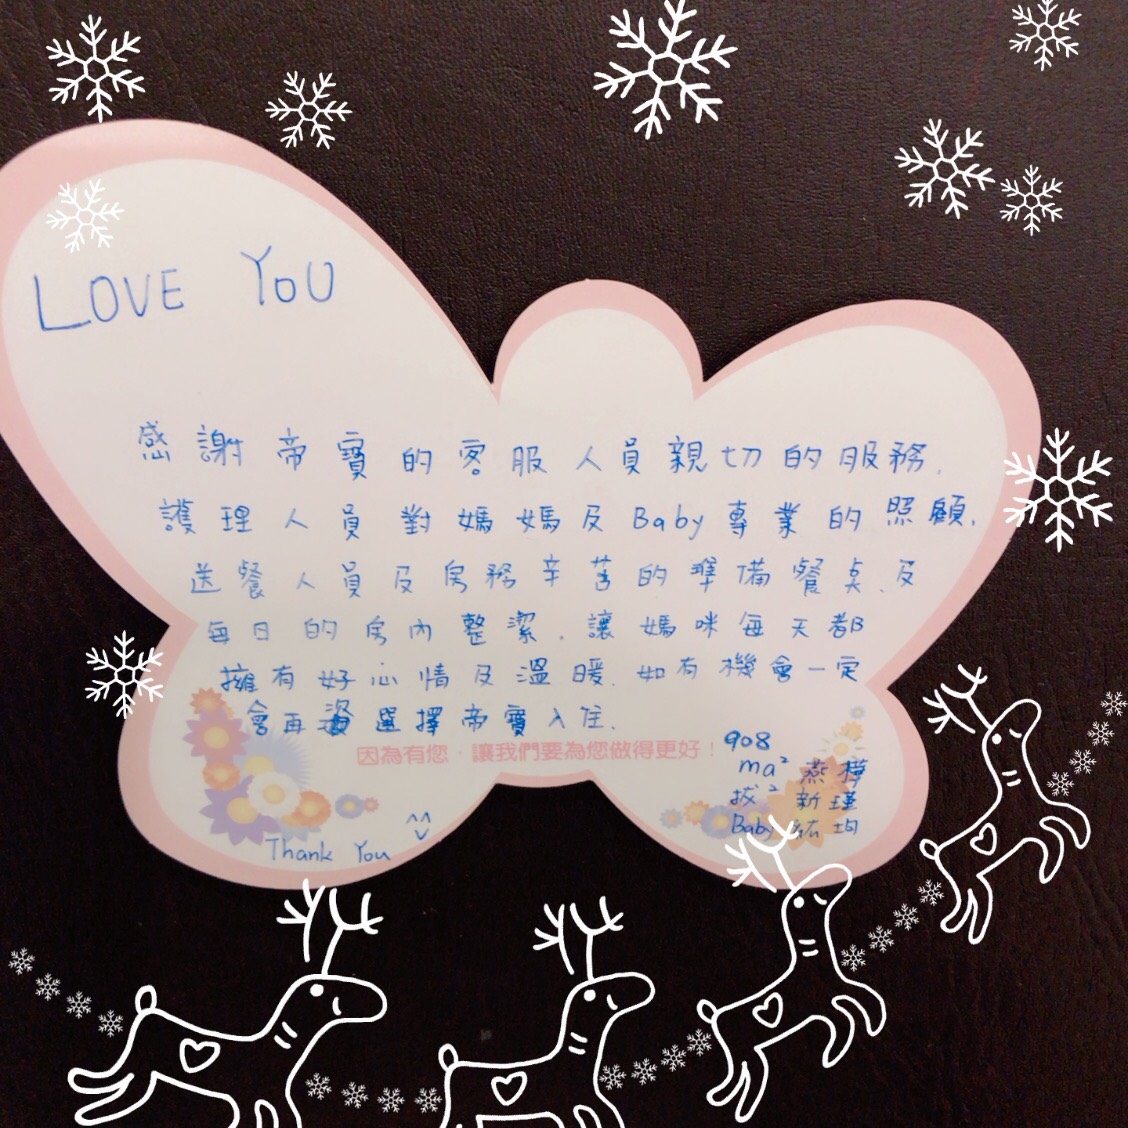 LOVE YOU
感謝帝寶的客服人員親切的服務.
護理人員對媽媽及Baby專業的照顧.
送餐人員及房務辛苦的準備餐桌.及
每日的房內整潔.讓媽咪每天都
擁有好心情及溫暖.如有機會一定
會再選擇帝寶入住.
因為有您．讓我們要為您做得更好！
908
ma² 燕樺
拔² 新瑾
Baby 紘均
Thank You ^^